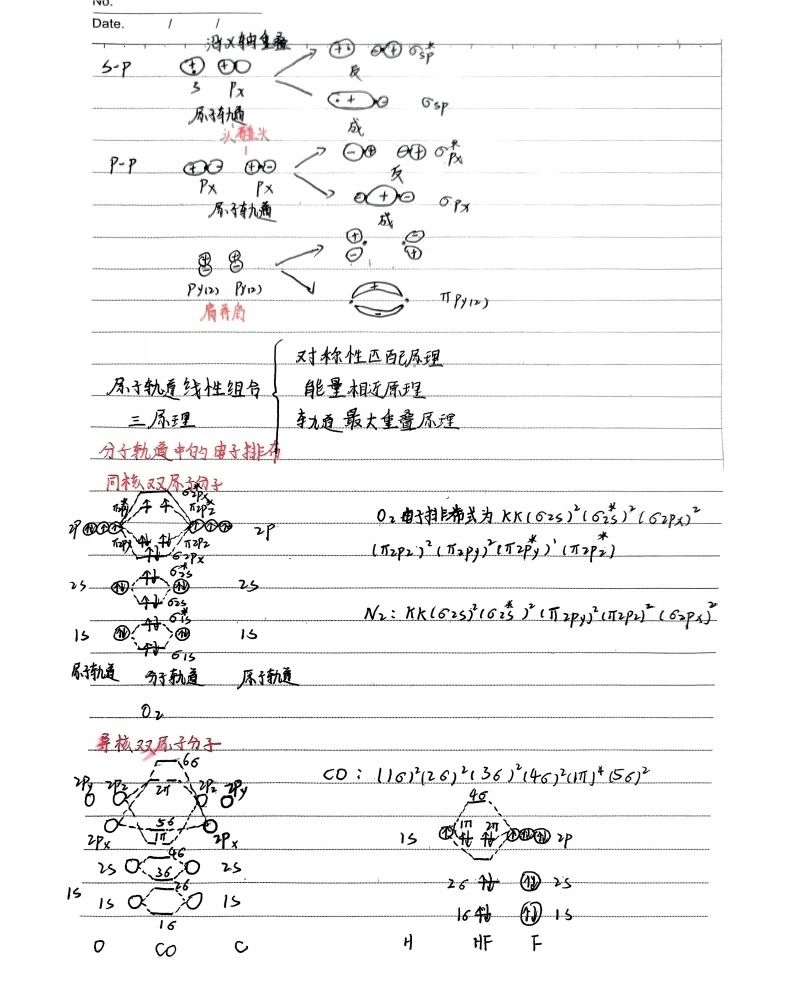 No.
Date. / /
沿 X 轴重叠
S-P
S Px
原子轨道
反 σ*sp
成 σsp
头碰头
P-P
Px Px
原子轨道
反 σ*px
成 σpx
Py(z) Py(z)
肩并肩
πpy(z)
原子轨道线性组合
三原理
对称性匹配原理
能量相近原理
轨道最大重叠原理
分子轨道中的电子排布
同核双原子分子
σ*2px
π*2pz
2P 2P
π2px π2pz
σ2px
σ*2s
2S 2S
σ2s
σ*1s
1S 1S
σ1s
原子轨道 分子轨道 原子轨道
O2
O2电子排布式为 KK(σ2s)²(σ*2s)²(σ2px)²
(π2pz)²(π2py)²(π2p*y)¹(π2p*z)
N2: KK(σ2s)²(σ*2s)²(π2py)²(π2pz)²(σ2px)²
异核双原子分子
6σ
2Py 2Pz 2π 2Pz 2Py
5σ
2Px 1π 2Px
4σ
2S 3σ 2S
1S 2σ
1S 1S
1σ
O CO C
CO: (1σ)²(2σ)²(3σ)²(4σ)²(1π)⁴(5σ)²
4σ
1S 1π 2π 2P
2σ 2S
1σ 1S
H HF F